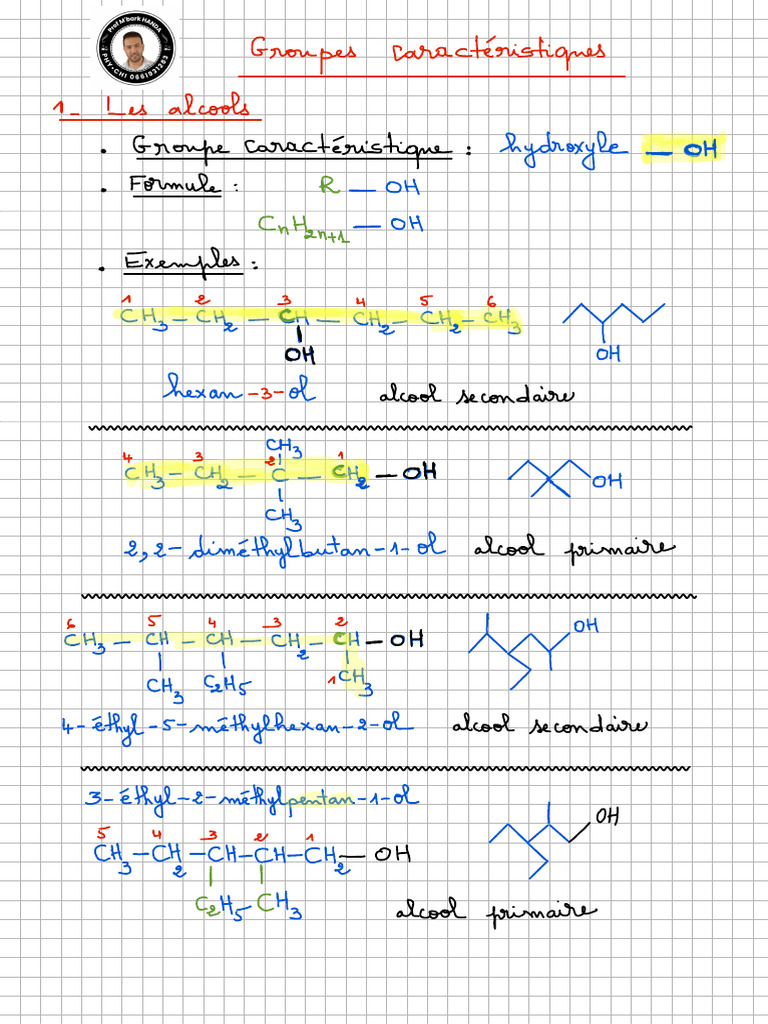 Prof M'bark HANDA
PHY-CHI 0661931283
Groupes caractéristiques
1- Les alcools
. Groupe caractéristique : hydroxyle — OH
. Formule : R — OH
CnH2n+1 — OH
. Exemples :
1 2 3 4 5 6
CH3 — CH2 — CH — CH2 — CH2 — CH3
OH
OH
hexan-3-ol alcool secondaire
CH3
4 3 2 1
CH3 — CH2 — C — CH2 — OH
OH
CH3
2,2-diméthylbutan-1-ol alcool primaire
6 5 4 3 2
CH3 — CH — CH — CH2 — CH — OH
OH
CH3 C2H5 1 CH3
4-éthyl-5-méthylhexan-2-ol alcool secondaire
3-éthyl-2-méthylpentan-1-ol
OH
5 4 3 2 1
CH3 — CH2 — CH — CH — CH2 — OH
C2H5 CH3
alcool primaire